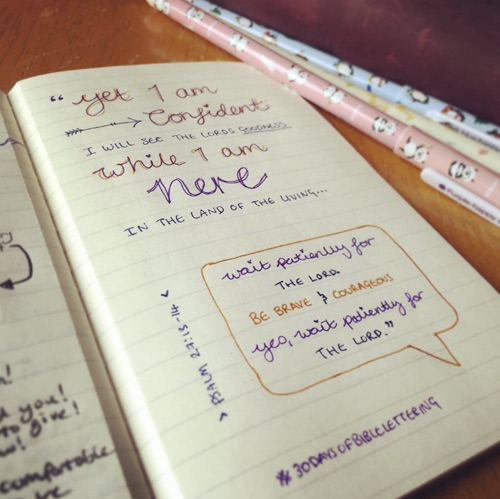 “yet I am
Confident
I WILL SEE THE LORDS GOODNESS
while I am
here
IN THE LAND OF THE LIVING...
wait patiently for
THE LORD.
BE BRAVE & COURAGEOUS
yes, wait patiently for
THE LORD.”
< PSALM 27:13-14 >
#30DAYSOFBIBLELETTERING
you!
to give!
comfortable
be